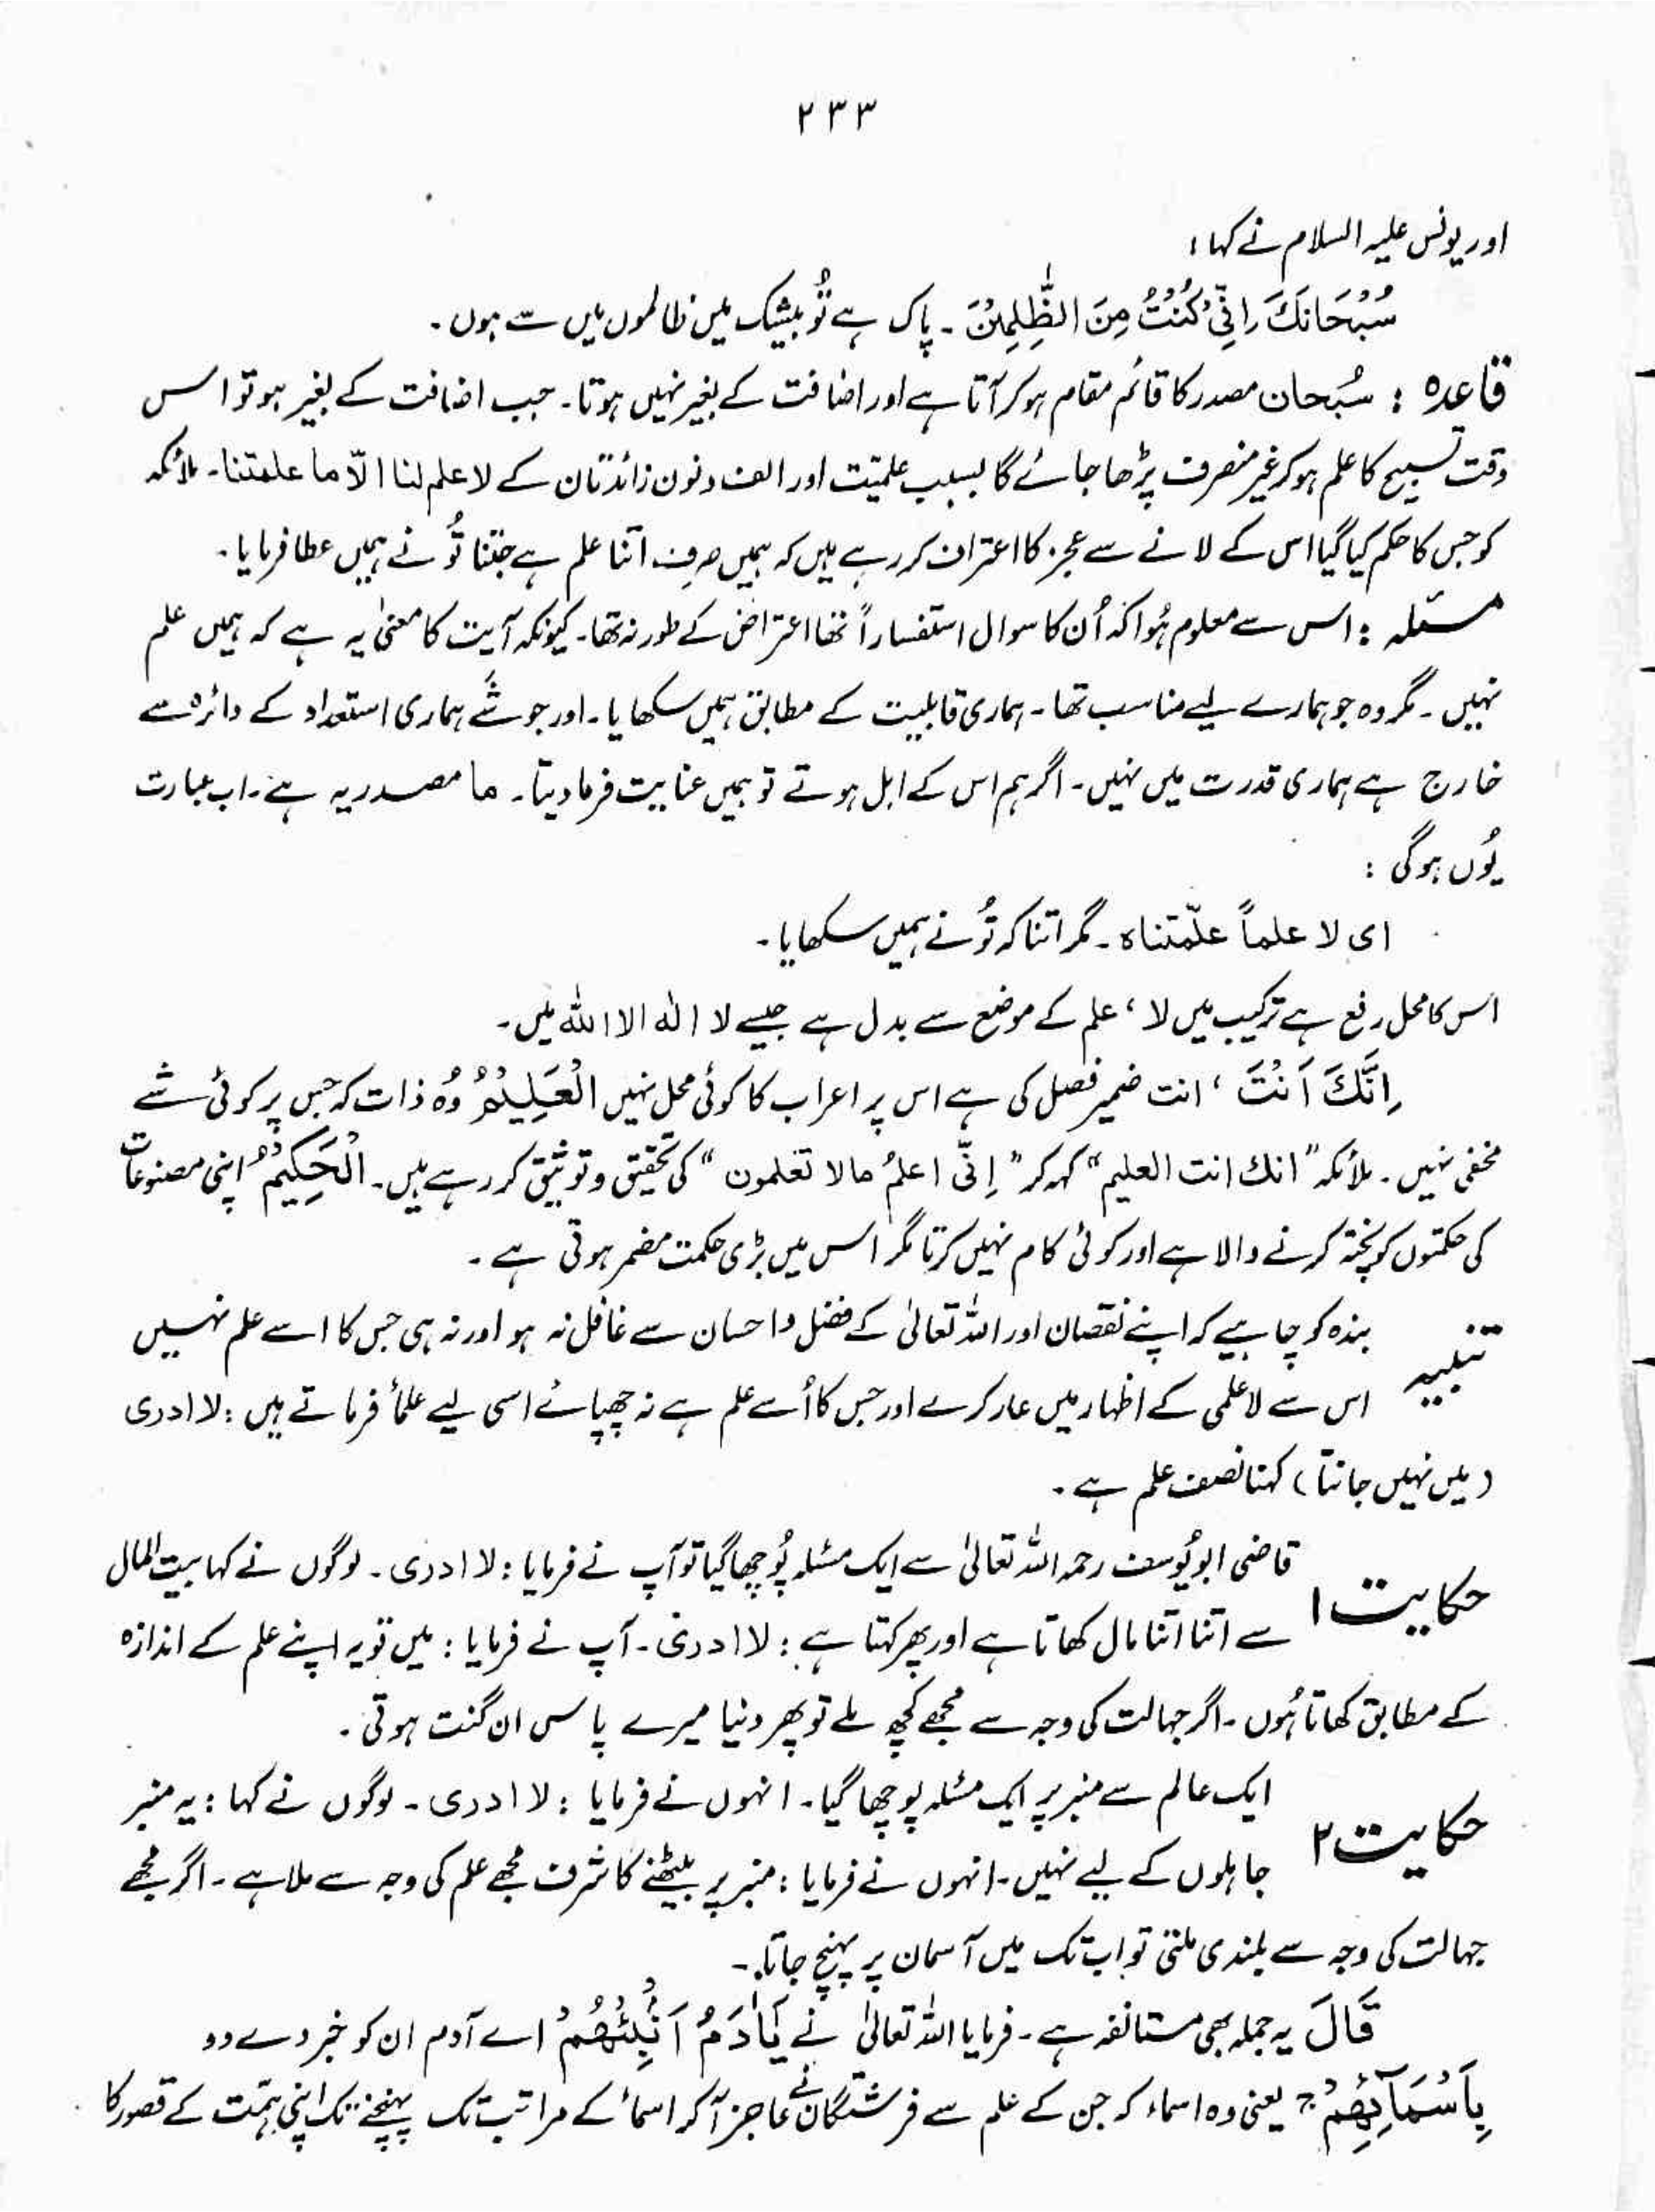 ۲۳۳
اور یونس علیہ السلام نے کہا:
سُبْحَانَكَ اِنِّیْ كُنْتُ مِنَ الظّٰلِمِیْنَ ۔ پاک ہے تُو بیشک میں ظالموں میں سے ہوں۔
قاعدہ : سُبحان مصدر کا قائم مقام ہو کر آتا ہے اور اضافت کے بغیر نہیں ہوتا۔ جب اضافت کے بغیر ہو تو اس
وقت تسبیح کا علم ہو کر غیر منصرف پڑھا جائے گا بسبب علمیّت اور الف و نون زائدتان کے لا علم لنا الّا ما علمتنا۔ ملائکہ
کو جس کا حکم کیا گیا اس کے لانے سے عجز کا اعتراف کر رہے ہیں کہ ہمیں صرف اتنا علم ہے جتنا تُو نے ہمیں عطا فرمایا۔
مسئلہ : اس سے معلوم ہُوا کہ اُن کا سوال استفساراً تھا اعتراض کے طور نہ تھا۔ کیونکہ آیت کا معنیٰ یہ ہے کہ ہمیں علم
نہیں۔ مگر وہ جو ہمارے لیے مناسب تھا۔ ہماری قابلیت کے مطابق ہمیں سکھایا۔ اور جو شَے ہماری استعداد کے دائرہ سے
خارج ہے ہماری قدرت میں نہیں۔ اگر ہم اس کے اہل ہوتے تو ہمیں عنایت فرما دیتا۔ ما مصدریہ ہے۔ اب عبارت
یُوں ہوگی :
ای لا علماً علّمتناہ ۔ مگر اتنا کہ تُو نے ہمیں سکھایا۔
اس کا محل رفع ہے ترکیب میں لا ، علم کے موضع سے بدل ہے جیسے لا الٰہ الا اللہ میں۔
اِنَّكَ اَنْتَ ، انت ضمیر فصل کی ہے اس پر اعراب کا کوئی محل نہیں الْعَلِیْمُ وُہ ذات کہ جس پر کوئی شے
مخفی نہیں۔ ملائکہ ”انك انت العلیم“ کہہ کر ”اِنّی اعلمُ مالا تعلمون“ کی تحقیق و توثیق کر رہے ہیں۔ الْحَكِیْمُ اپنی مصنوعات
کی حکمتوں کو پختہ کرنے والا ہے اور کوئی کام نہیں کرتا مگر اس میں بڑی حکمت مضمر ہوتی ہے۔
تنبیہ بندہ کو چاہیے کہ اپنے نقصان اور اللہ تعالیٰ کے فضل و احسان سے غافل نہ ہو اور نہ ہی جس کا اسے علم نہیں
اس سے لاعلمی کے اظہار میں عار کرے اور جس کا اُسے علم ہے نہ چھپائے اسی لیے علماء فرماتے ہیں : لا ادری
(میں نہیں جانتا) کہنا نصف علم ہے۔
حکایت ۱ قاضی ابویُوسف رحمہ اللہ تعالیٰ سے ایک مسئلہ پُوچھا گیا تو آپ نے فرمایا : لا ادری۔ لوگوں نے کہا بیت المال
سے اتنا اتنا مال کھاتا ہے اور پھر کہتا ہے : لا ادری۔ آپ نے فرمایا : میں تو یہ اپنے علم کے اندازہ
کے مطابق کھاتا ہُوں۔ اگر جہالت کی وجہ سے مجھے کچھ ملے تو پھر دنیا میرے پاس ان گنت ہوتی۔
حکایت ۲ ایک عالم سے منبر پر ایک مسئلہ پوچھا گیا۔ انہوں نے فرمایا : لا ادری۔ لوگوں نے کہا : یہ منبر
جاہلوں کے لیے نہیں۔ انہوں نے فرمایا : منبر پر بیٹھنے کا شرف مجھے علم کی وجہ سے ملا ہے۔ اگر مجھے
جہالت کی وجہ سے بلندی ملتی تو اب تک میں آسمان پر پہنچ جاتا۔
قَالَ یہ جملہ بھی مستانفہ ہے۔ فرمایا اللہ تعالیٰ نے یٰۤاٰدَمُ اَنْۢبِئْهُمْ اے آدم ان کو خبر دے دو
بِاَسْمَآئِهِمْ ج یعنی وہ اسماء کہ جن کے علم سے فرشتگان نے عاجز آ کر اسماء کے مراتب تک پہنچنے تک اپنی ہمّت کے قصور کا